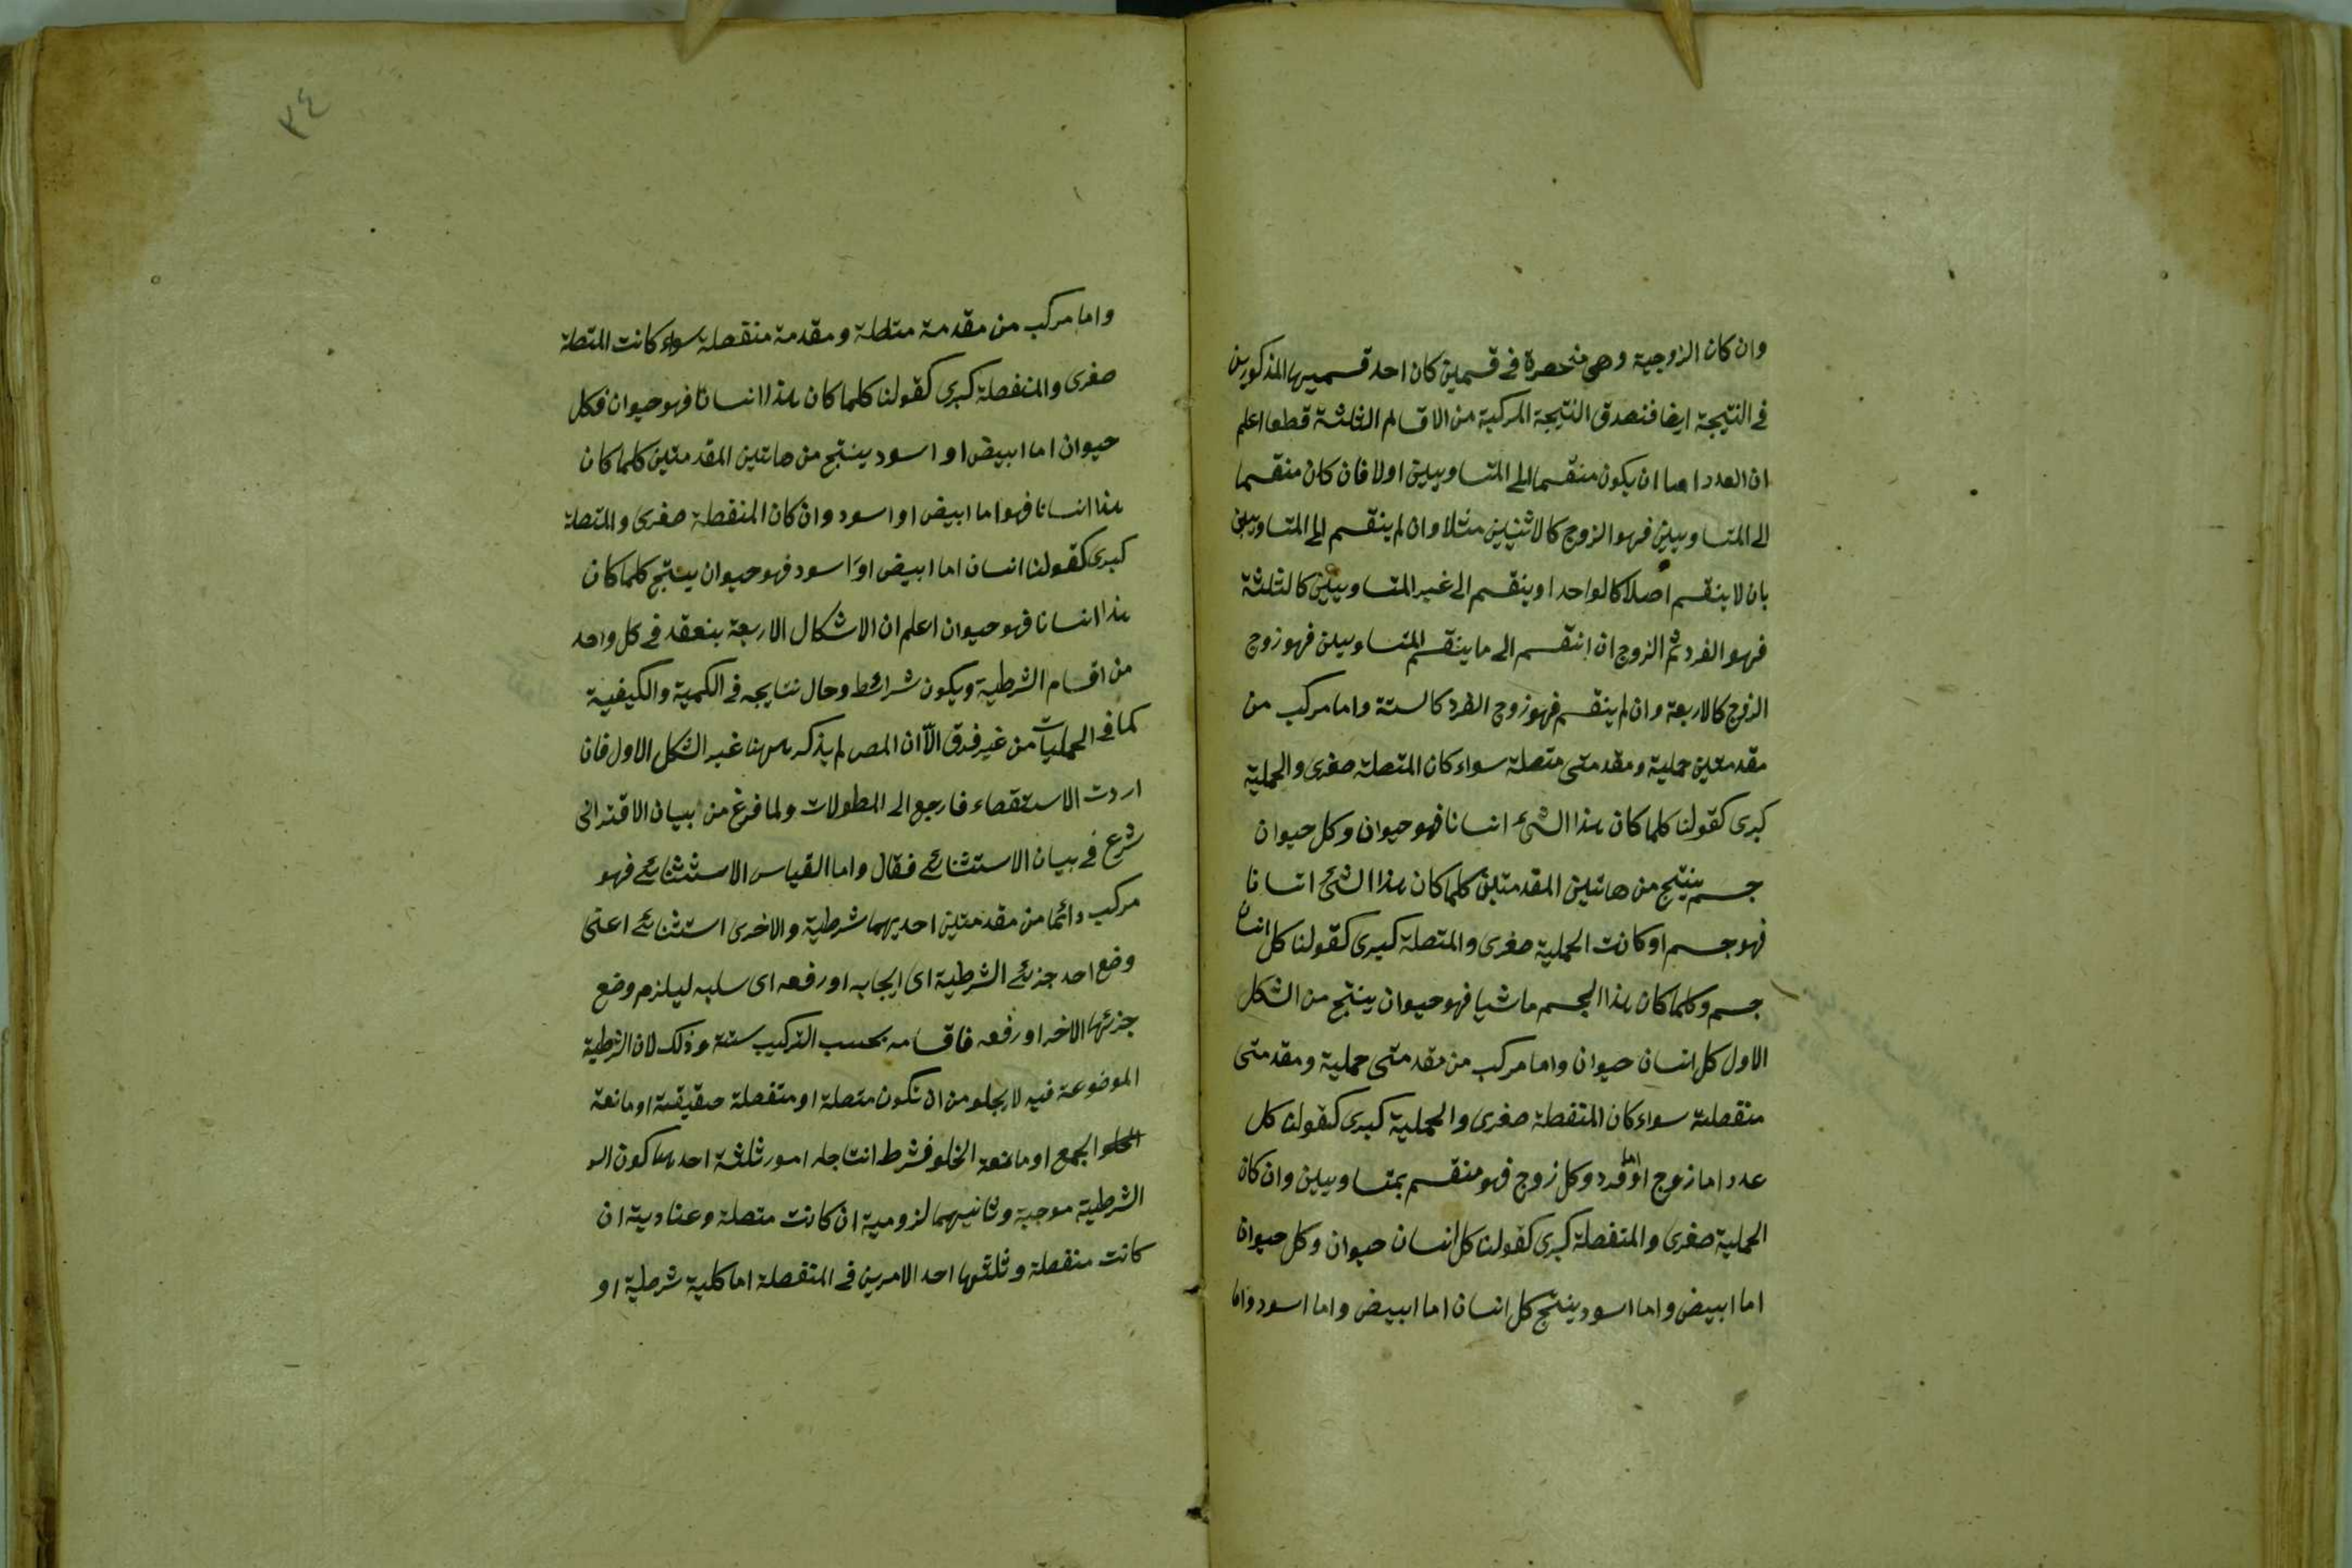 وان كان الزوجية وهى منحصرة فى قسمين كان احد قسميها المذكورين
فى النتيجة ايضا فتصدق النتيجة المركبة من الاقسام الثلثة قطعا اعلم
ان العدد اما ان يكون منقسما الى المتساويين اولا فان كان منقسما
الى المتساويين فهو الزوج كالاثنين مثلا وان لم ينقسم الى المتساويين
بان لا ينقسم اصلا كالواحد او ينقسم الى غير المتساويين كالثلثة
فهو الفرد ثم الزوج ان انقسم الى ما ينقسم المتساويين فهو زوج
الزوج كالاربعة وان لم ينقسم فهو زوج الفرد كالستة واما مركب من
مقدمتين حملية ومقدمتى متصلة سواء كان المتصلة صغرى والحملية
كبرى كقولنا كلما كان هذا الشئ انسانا فهو حيوان وكل حيوان
جسم ينتج من هاتين المقدمتين كلما كان هذا الشئ انسانا
فهو جسم او كانت الحملية صغرى والمتصلة كبرى كقولنا كل انسان
جسم وكلما كان هذا الجسم ماشيا فهو حيوان ينتج من الشكل
الاول كل انسان حيوان واما مركب من مقدمتى حملية ومقدمتى
منفصلة سواء كان المنفصلة صغرى والحملية كبرى كقولنا كل
عدد اما زوج او اما فرد وكل زوج فهو منقسم بمتساويين وان كان
الحملية صغرى والمنفصلة كبرى كقولنا كل انسان حيوان وكل حيوان
اما ابيض واما اسود ينتج كل انسان اما ابيض واما اسود واما
٣٤
واما مركب من مقدمة متصلة ومقدمة منفصلة سواء كانت المتصلة
صغرى والمنفصلة كبرى كقولنا كلما كان هذا انسانا فهو حيوان فكل
حيوان اما ابيض او اسود ينتج من هاتين المقدمتين كلما كان
هذا انسانا فهو اما ابيض او اسود وان كان المنفصلة صغرى والمتصلة
كبرى كقولنا انسان اما ابيض او اسود فهو حيوان ينتج كلما كان
هذا انسانا فهو حيوان اعلم ان الاشكال الاربعة ينعقد فى كل واحد
من اقسام الشرطية ويكون شرائط وحال نتايجه فى الكمية والكيفية
كما فى الحمليات من غير فرق الّا ان المص لم يذكر ههنا غير الشكل الاول فان
اردت الاستقصاء فارجع الى المطولات ولما فرغ من بيان الاقترانى
شرع فى بيان الاستثنائى فقال واما القياس الاستثنائى فهو
مركب دائما من مقدمتين احديهما شرطية والاخرى استثنائى اعنى
وضع احد جزئى الشرطية اى ايجابه او رفعه اى سلبه ليلزم وضع
جزئها الاخر او رفعه فاقسامه بحسب التركيب ستة وذلك لان الشرطية
الموضوعة فيه لا يخلو من ان تكون متصلة او منفصلة حقيقية او مانعة
الجمع او مانعة الخلو فشرط انتاجه امور ثلثة احدها كون
الشرطية موجبة وثانيهما لزومية ان كانت متصلة وعنادية ان
كانت منفصلة وثلثها احد الامرين فى المنفصلة اما كلية شرطية او